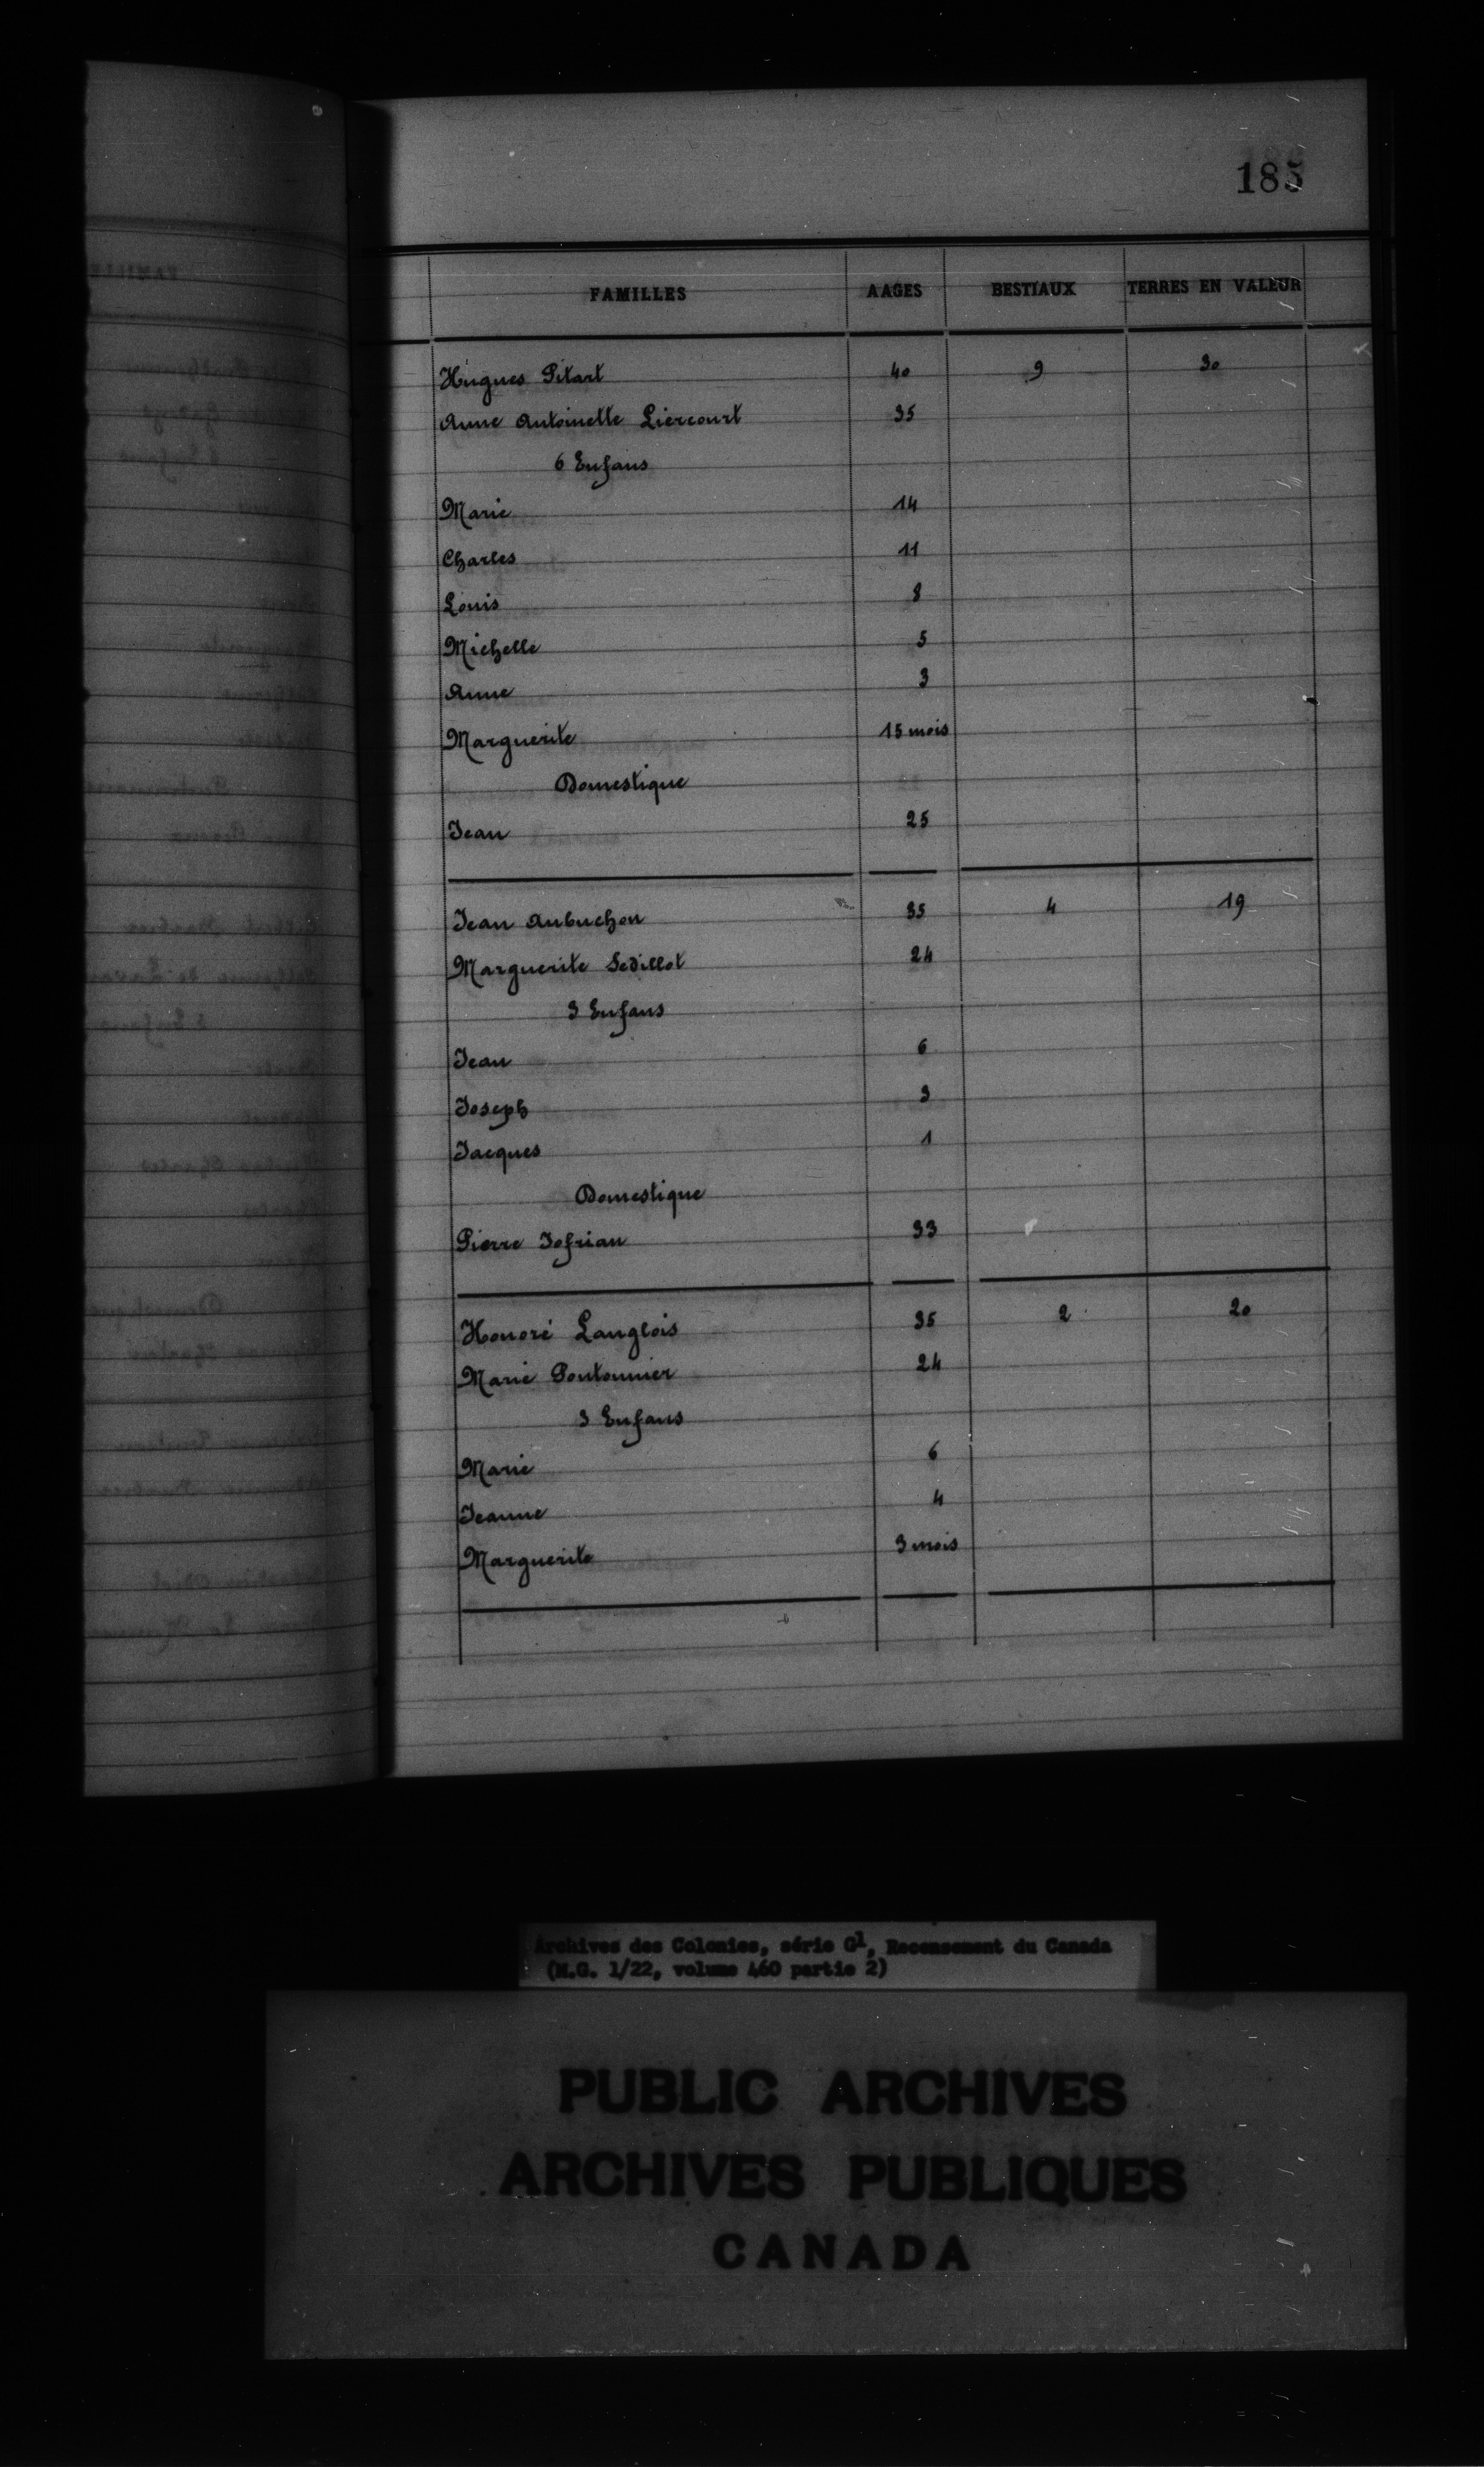 185
FAMILLES AAGES BESTIAUX TERRES EN VALEUR
Hugues Pitart 40 9 30
Anne Antoinette Liercourt 35
6 Enfans
Marie 14
Charles 11
Louis 8
Michelle 5
Anne 3
Marguerite 15 mois
Domestique
Jean 25
Jean Aubuchon 35 4 19
Marguerite Sedillot 24
3 Enfans
Jean 6
Joseph 3
Jacques 1
Domestique
Pierre Jofrian 33
Honoré Langlois 35 2 20
Marie Pontonnier 24
3 Enfans
Marie 6
Jeanne 4
Marguerite 3 mois
Archives des Colonies, série G1, Recensement du Canada
(M.G. 1/22, volume 460 partie 2)
PUBLIC ARCHIVES
ARCHIVES PUBLIQUES
CANADA